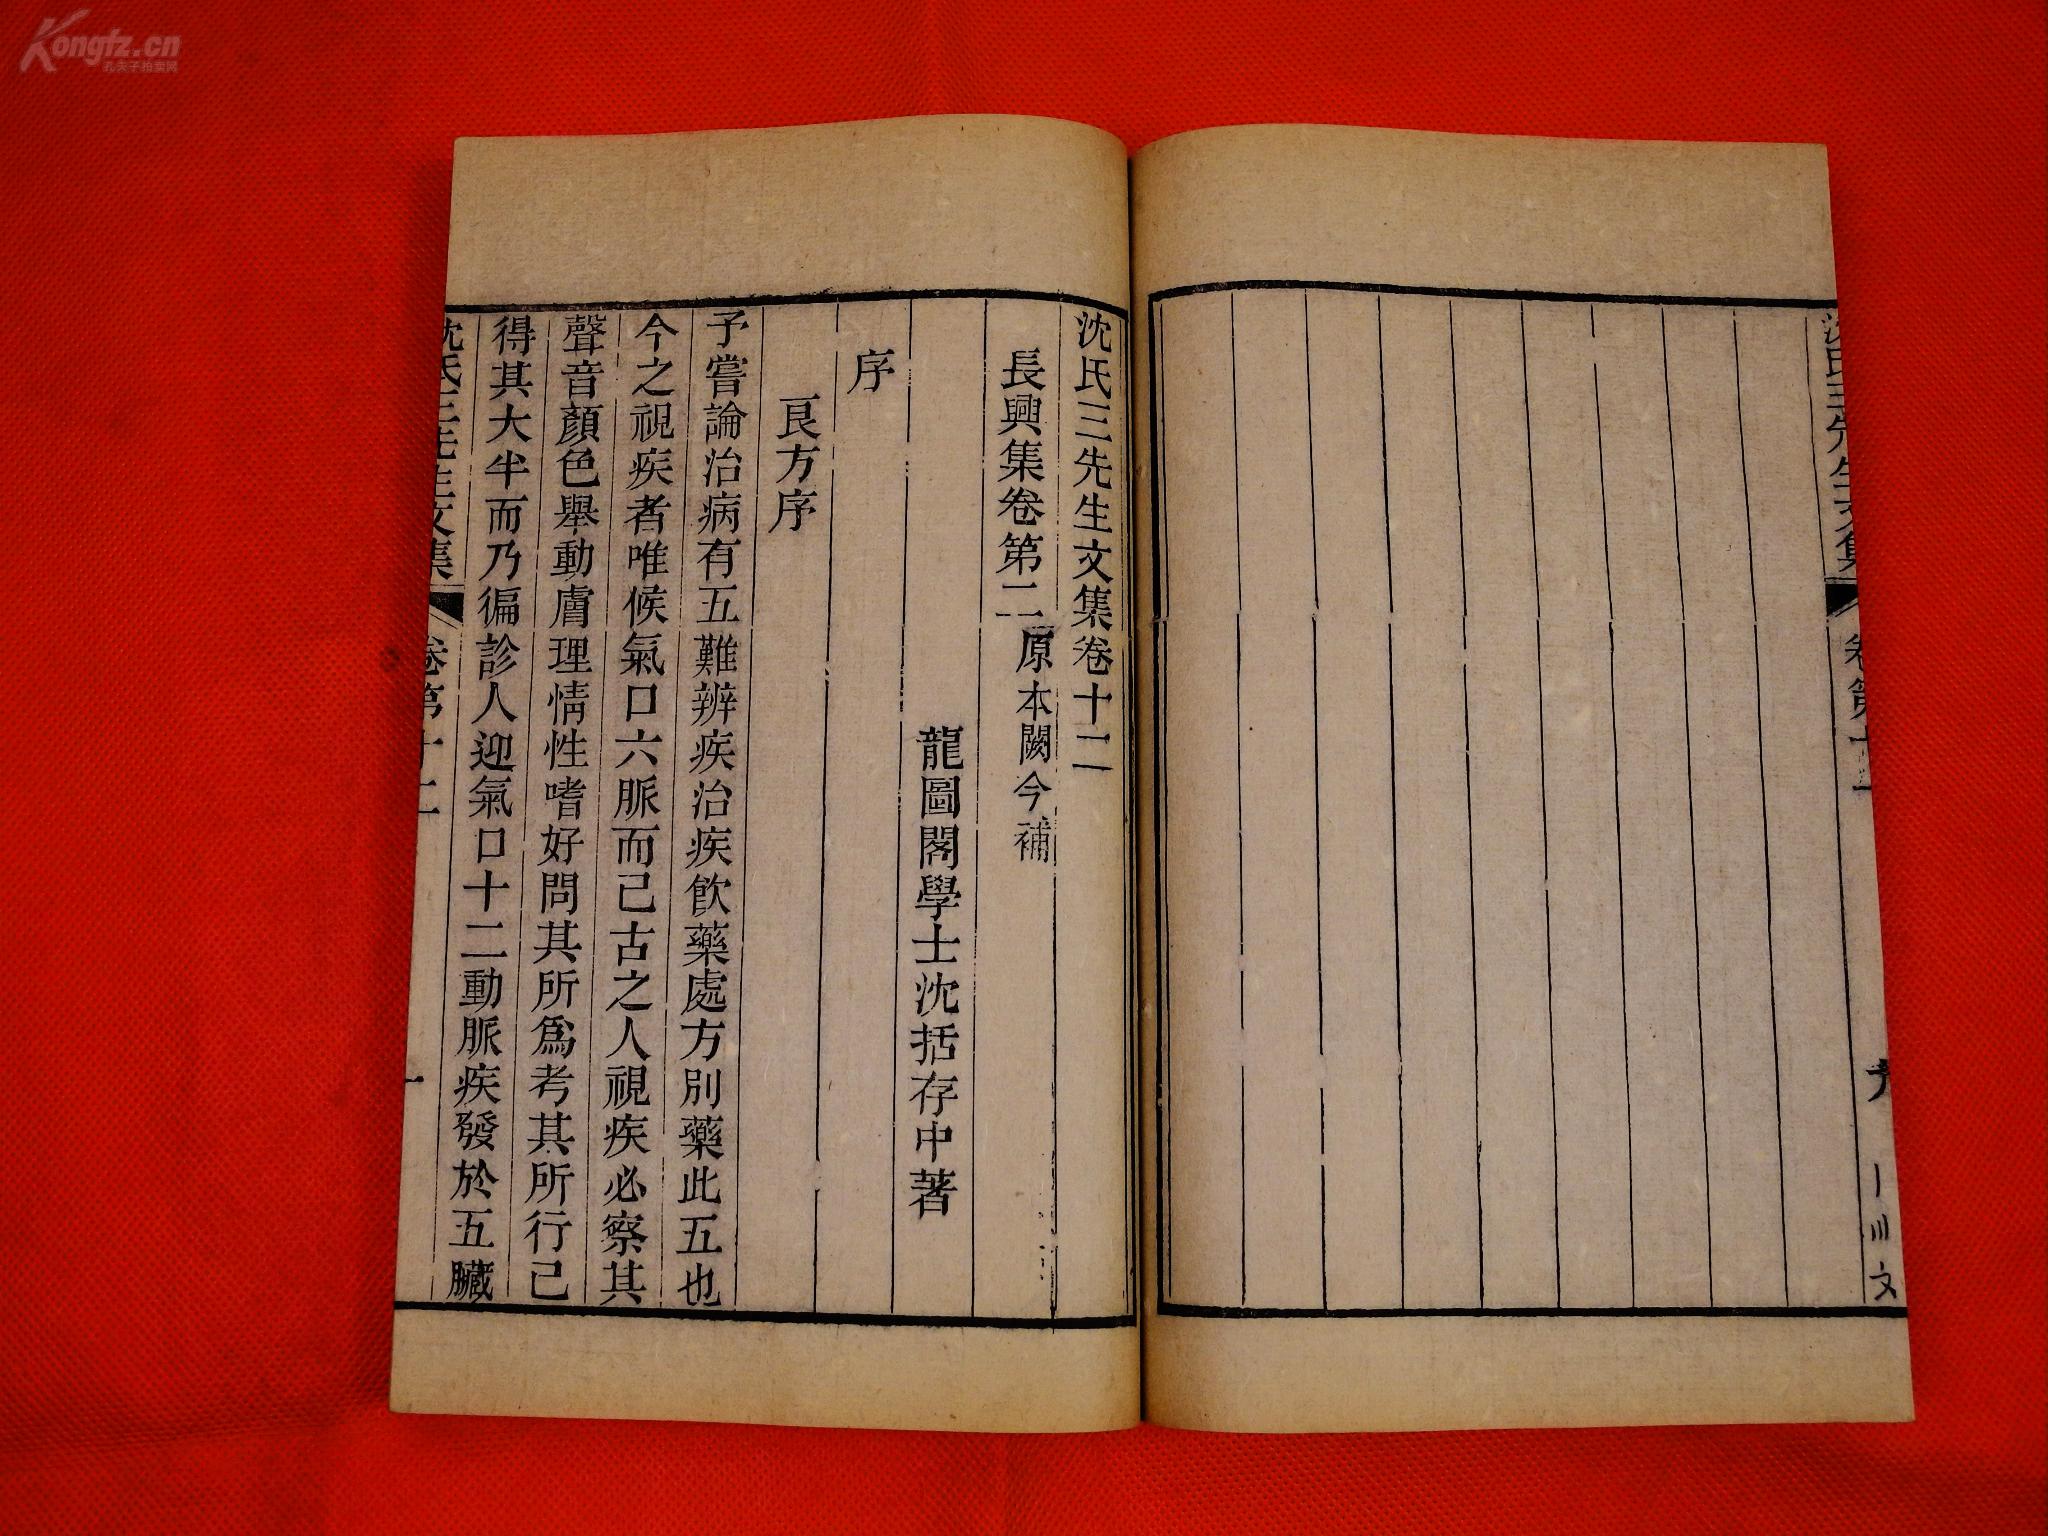 Kongfz.cn
孔夫子拍卖网
沈氏三先生文集卷十二
長興集卷第二原本闕今補
龍圖閣學士沈括存中著
序
良方序
予嘗論治病有五難辨疾治疾飮藥處方別藥此五也
今之視疾者唯候氣口六脈而己古之人視疾必察其
聲音顏色舉動膚理情性嗜好問其所爲考其所行己
得其大半而乃徧診人迎氣口十二動脈疾發於五臟
沈氏三先生文集
卷第十二
一